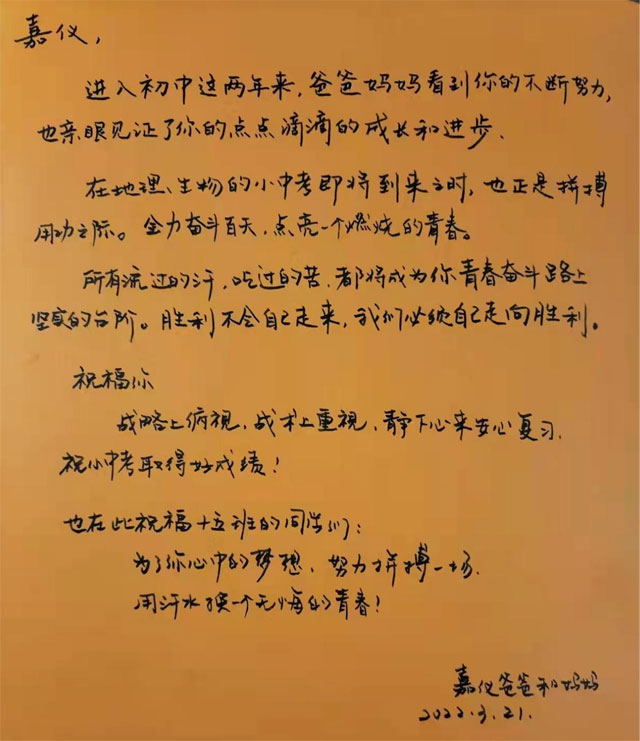 嘉仪，
进入初中这两年来，爸爸妈妈看到你的不断努力，
也亲眼见证了你的点点滴滴的成长和进步．
在地理、生物的小中考即将到来之时，也正是拼搏
用功之际。全力奋斗百天，点亮一个燃烧的青春。
所有流过的汗，吃过的苦，都将成为你青春奋斗路上
坚实的台阶。胜利不会自己走来，我们必须自己走向胜利。
祝福你
战略上俯视，战术上重视，静下心来安心复习．
祝小中考取得好成绩！
也在此祝福十五班的同学们：
为了你心中的梦想，努力拼搏一场．
用汗水换一个无悔的青春！
嘉仪爸爸和妈妈
2022.3.21.